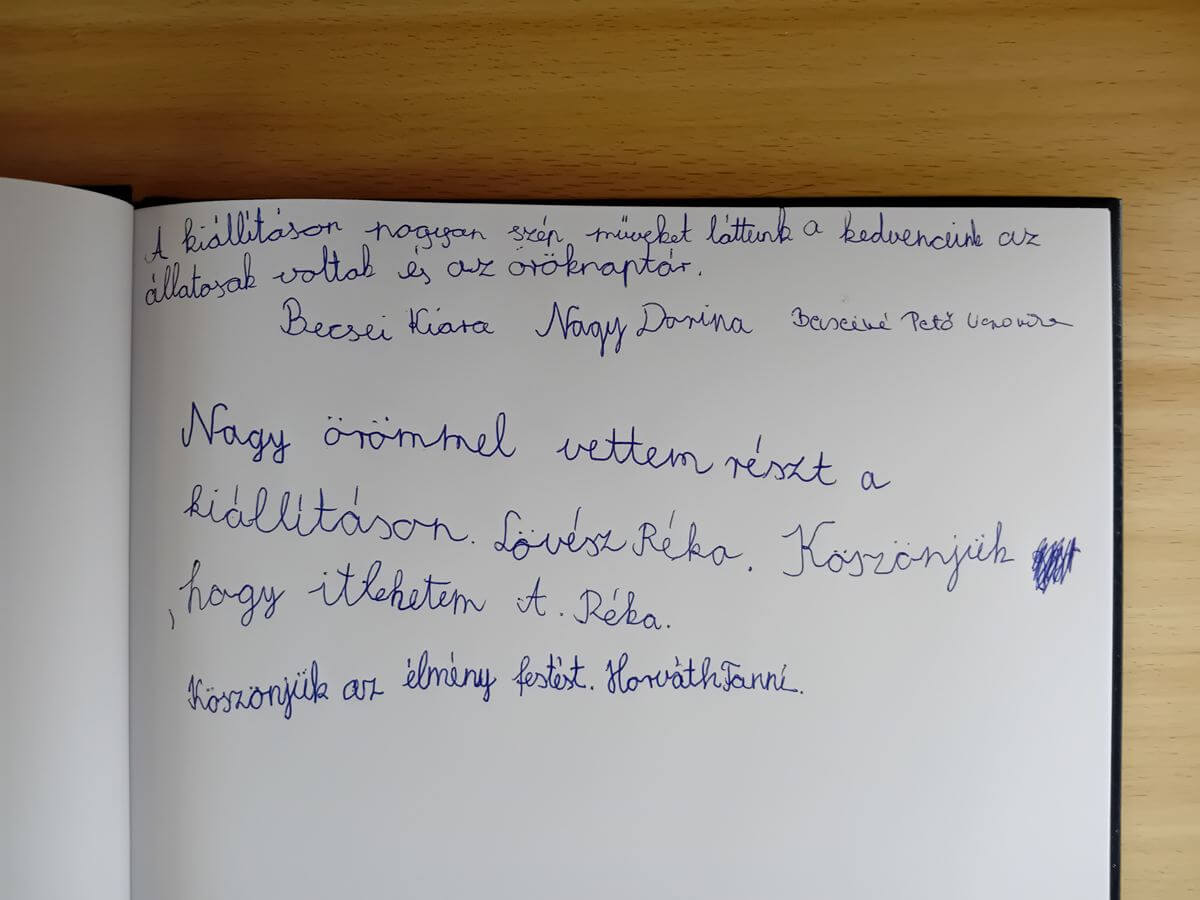 A kiállításon nagyon szép műveket láttunk a kedvenceink az
állatosak voltak és az öröknaptár.
Becsei Kiara Nagy Dorina Pető
Nagy örömmel vettem részt a
kiállításon. Lövész Réka. Köszönjük
, hogy itlehetem A. Réka.
Köszönjük az élmény festést. Horváth Fanni.